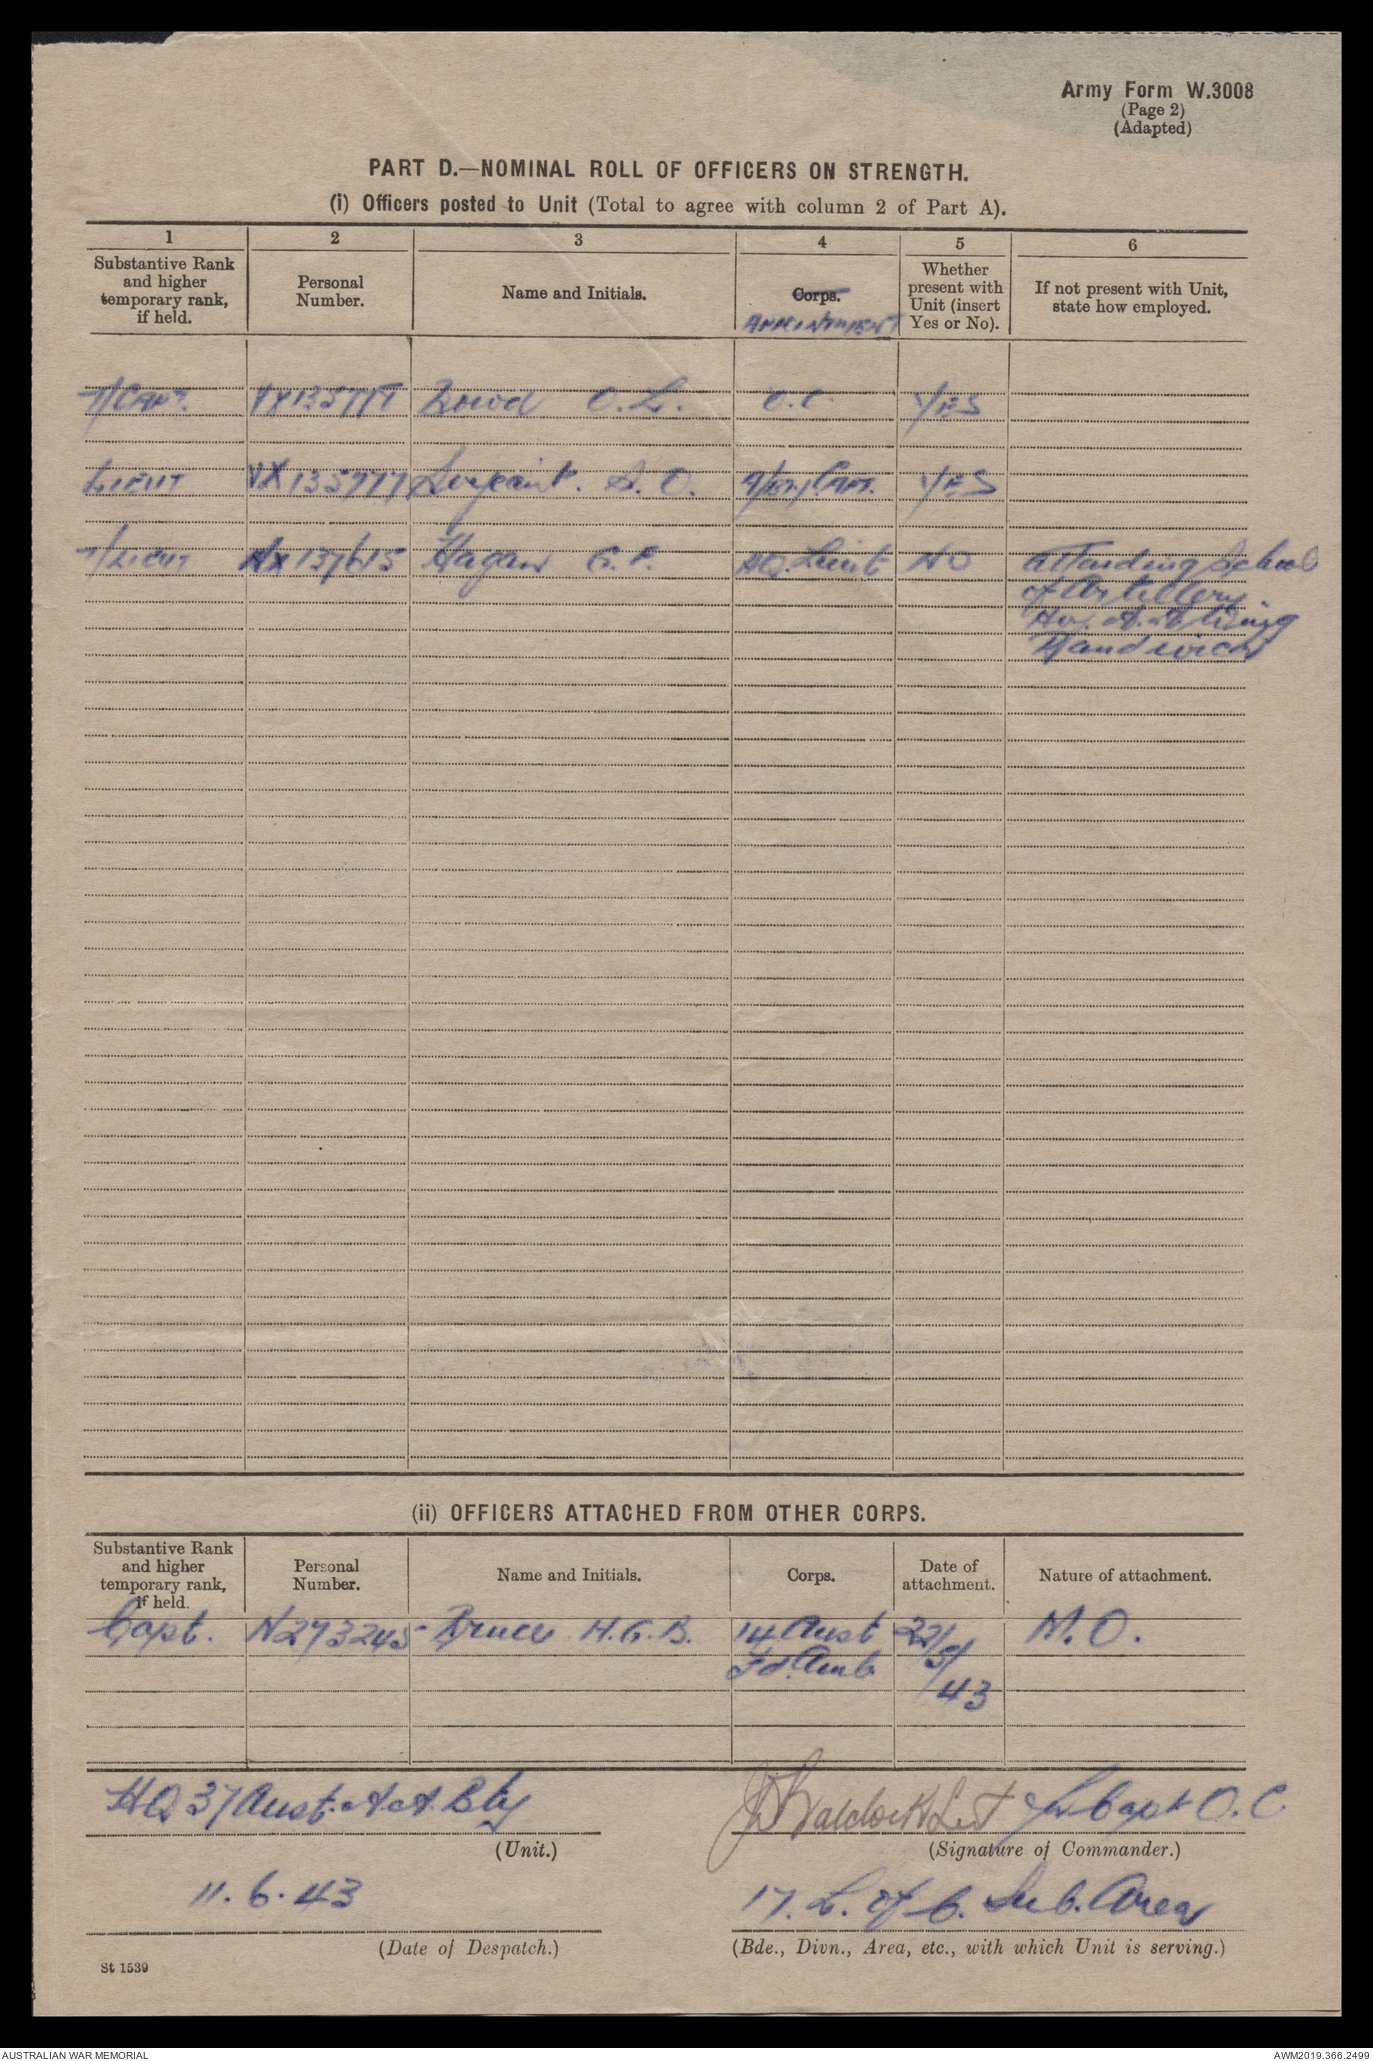 Army Form W.3008
(Page 2)
(Adapted)
PART D.—NOMINAL ROLL OF OFFICERS ON STRENGTH.
(i) Officers posted to Unit (Total to agree with column 2 of Part A).
1 2 3 4 5 6
Substantive Rank and higher temporary rank, if held. Personal Number. Name and Initials. Corps. APPOINTMENT Whether present with Unit (insert Yes or No). If not present with Unit, state how employed.
T/CAPT. O.L. O.C. YES
LIEUT Sergeant. A. O. CAPT. YES
T/LIEUT Hagan G. F. HQ. Lieut NO attending School
of Artillery
A.A. Wing
Randwick
(ii) OFFICERS ATTACHED FROM OTHER CORPS.
Substantive Rank and higher temporary rank, if held. Personal Number. Name and Initials. Corps. Date of attachment. Nature of attachment.
Capt. N273245 Bruce H.G.B. 14 Aust 22/ M.O.
Fd. Amb 5/
43
HQ 37 Aust. A.A. Bty Lt for Capt O.C.
(Unit.) (Signature of Commander.)
11.6.43 17. L. of C. Sub. Area
(Date of Despatch.) (Bde., Divn., Area, etc., with which Unit is serving.)
St 1539
AUSTRALIAN WAR MEMORIAL AWM2019.366.2499